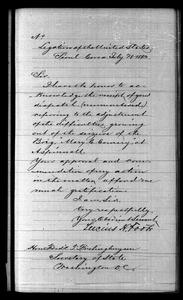 No
Legation of the United States
Seoul Corea July 1883
Sir
I have the honor to ac-
knowledge the receipt of your
dispatch (unnumbered)
referring to the adjustment
of the difficulty growing
out of the seizure of the
Brig, Mary E. at
Aspinwall.
Your approval and com-
mendation of my action
in the matter, afford me
much gratification.
I am Sir
Very respectfully
Your Obedient Servant
Lucius H. Foote
Hon. Fredk T. Frelinghuysen
Secretary of State
Washington D.C.